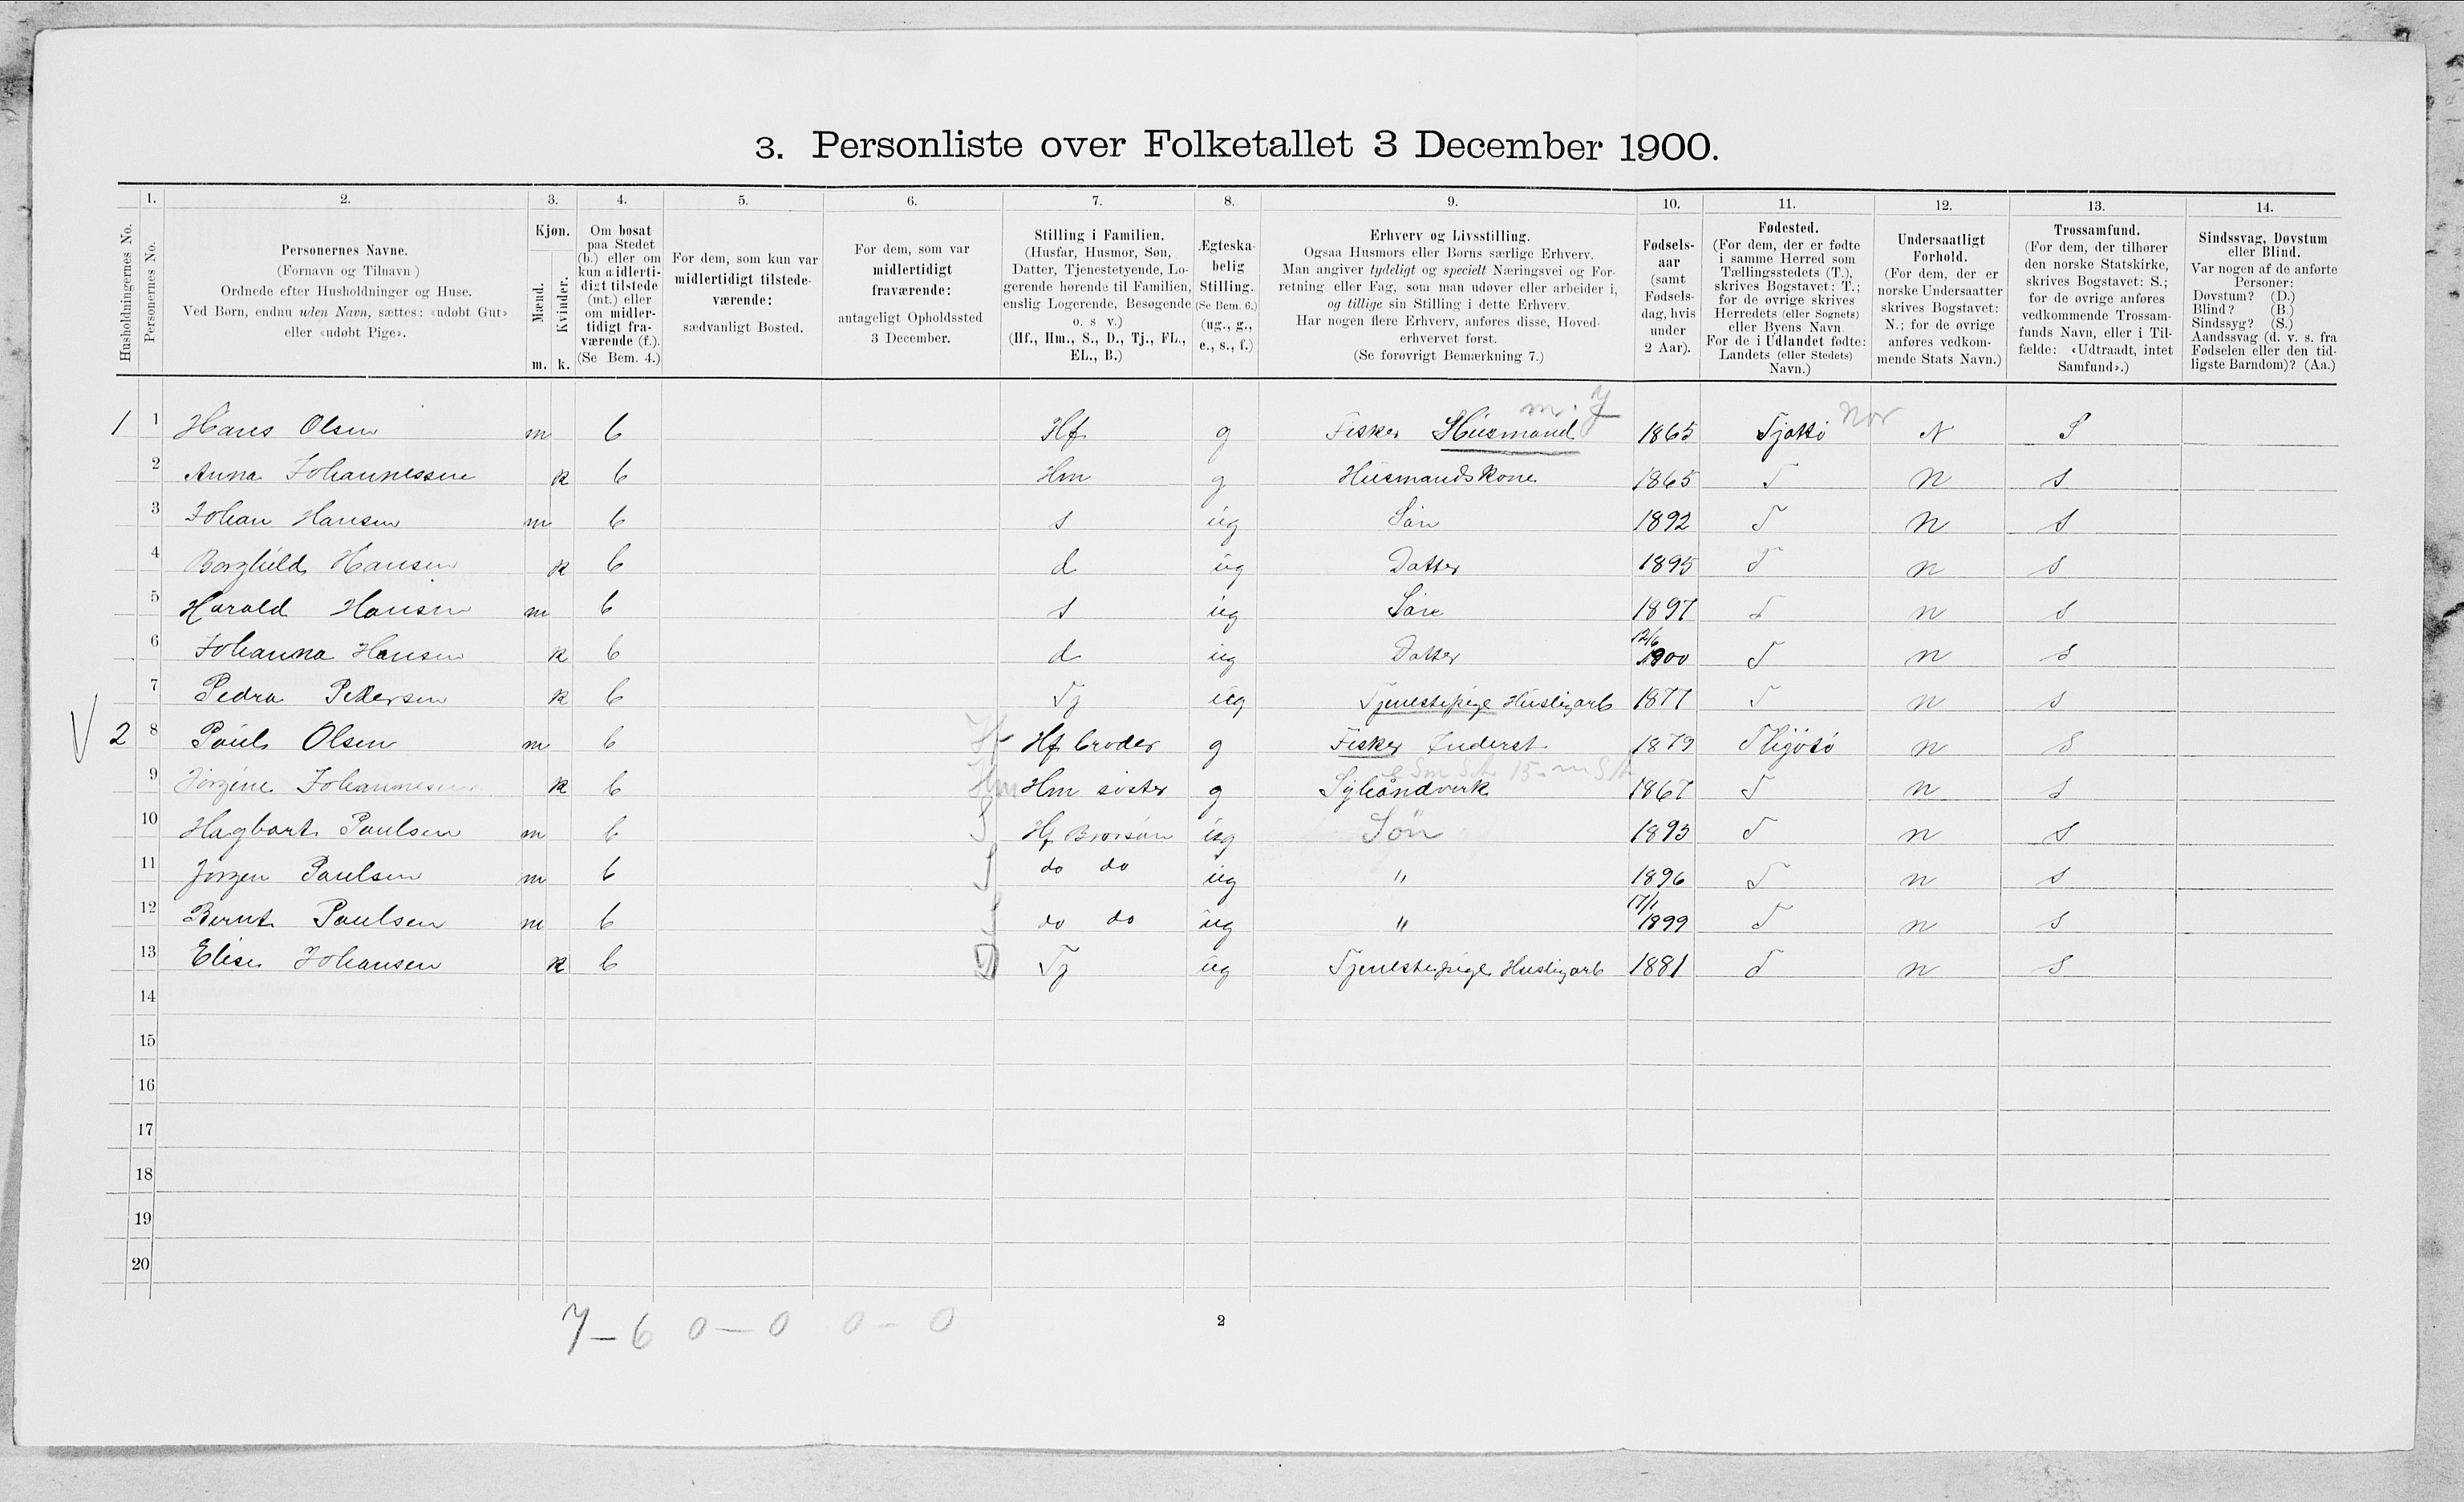 3. Personliste over Folketallet 3 December 1900.
Husholdningernes No.
1. Personernes No.
2. Personernes Navne.
(Fornavn og Tilnavn)
Ordnede efter Husholdninger og Huse.
Ved Børn, endnu uden Navn, sættes: «udøbt Gut»
eller «udøbt Pige».
3. Kjøn.
Mænd. m.
Kvinder. k.
4. Om bosat
paa Stedet
(b.) eller om
kun midlerti-
digt tilstede
(mt.) eller
om midler-
tidigt fra-
værende (f.).
(Se Bem. 4.)
5. For dem, som kun var
midlertidigt tilstede-
værende:
sædvanligt Bosted.
6. For dem, som var
midlertidigt
fraværende:
antageligt Opholdssted
3 December.
7. Stilling i Familien.
(Husfar, Husmor, Søn,
Datter, Tjenestetyende, Lo-
gerende hørende til Familien,
enslig Logerende, Besøgende
o. s v.)
(Hf., Hm., S., D., Tj., FL.,
EL., B.)
8. Ægteska-
belig
Stilling.
(Se Bem. 6.)
(ug., g.,
e., s., f.)
9. Erhverv og Livsstilling.
Ogsaa Husmors eller Børns særlige Erhverv.
Man angiver tydeligt og specielt Næringsvei og For-
retning eller Fag, som man udøver eller arbeider i,
og tillige sin Stilling i dette Erhverv.
Har nogen flere Erhverv, anføres disse, Hoved-
erhvervet først.
(Se forøvrigt Bemærkning 7.)
10. Fødsels-
aar
(samt
Fødsels-
dag, hvis
under
2 Aar).
11. Fødested.
(For dem, der er fødte
i samme Herred som
Tællingsstedets (T.),
skrives Bogstavet: T.;
for de øvrige skrives
Herredets (eller Sognets)
eller Byens Navn
For de i Udlandet fødte:
Landets (eller Stedets)
Navn.)
12. Undersaatligt
Forhold.
(For dem, der er
norske Undersaatter
skrives Bogstavet:
N.; for de øvrige
anføres vedkom-
mende Stats Navn.)
13. Trossamfund.
(For dem, der tilhører
den norske Statskirke,
skrives Bogstavet: S.;
for de øvrige anføres
vedkommende Trossam-
funds Navn, eller i Til-
fælde: «Udtraadt, intet
Samfund».)
14. Sindssvag, Døvstum
eller Blind.
Var nogen af de anførte
Personer:
Døvstum? (D.)
Blind? (B.)
Sindssyg? (S.)
Aandssvag (d. v. s. fra
Fødselen eller den tid-
ligste Barndom)? (Aa.)
1 1 Hans Olsen m b Hf g Fisker Husmand 1865 Tjøttø Nor N S
2 Anna Johannessen k b Hm g Husmandskone 1865 T N S
3 Johan Hansen m b s ug Søn 1892 T N S
4 Borghild Hansen k b d ug Datter 1895 T n s
5 Harald Hansen m b s ug Søn 1897 T n s
6 Johanna Hansen k b d ug Datter 12/6 1900 T n s
7 Pedra Pettersen k b Tj ug Tjenestepige Husligarb 1877 T n s
2 8 Paul Olsen m b Hf Hf broder g Fisker Inderst 1879 n S
9 Jørgine Johannesen k b Hm Hm søster g Syhåndverk 1867 T n s
10 Hagbart Paulsen m b S Hf Brorsøn ug Søn 1893 T n s
11 Jørgen Paulsen m b S do do ug " 1896 T n s
12 Bernt Paulsen m b S do do ug " 17/1 1899 T n s
13 Elise Johansen k b Tj ug Tjenestepige Husligarb 1881 T n S
14
15
16
17
18
19
20
7-6 0-0 0-0
2